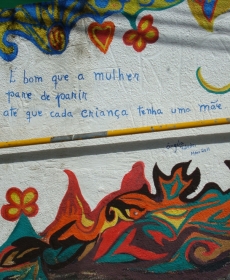 É bom que a mulher
pare de parir
até que cada criança tenha uma mãe